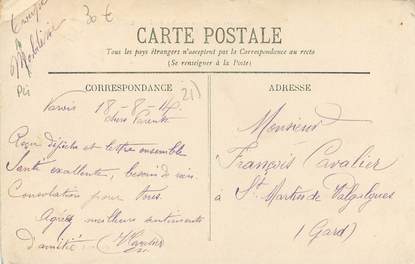 30 €
Groupe
CARTE POSTALE
Tous les pays étrangers n'acceptent pas la Correspondance au recto
(Se renseigner à la Poste)
CORRESPONDANCE
ADRESSE
18-8-14
21)
chers Parents
Reçu dépêche et lettre ensemble
Santé excellente, besoin de rien.
Consolation pour tous.
Agréez meilleurs sentiments
d'amitié
Monsieur
François Cavalier
à St Martin de Valgalgues
(Gard)